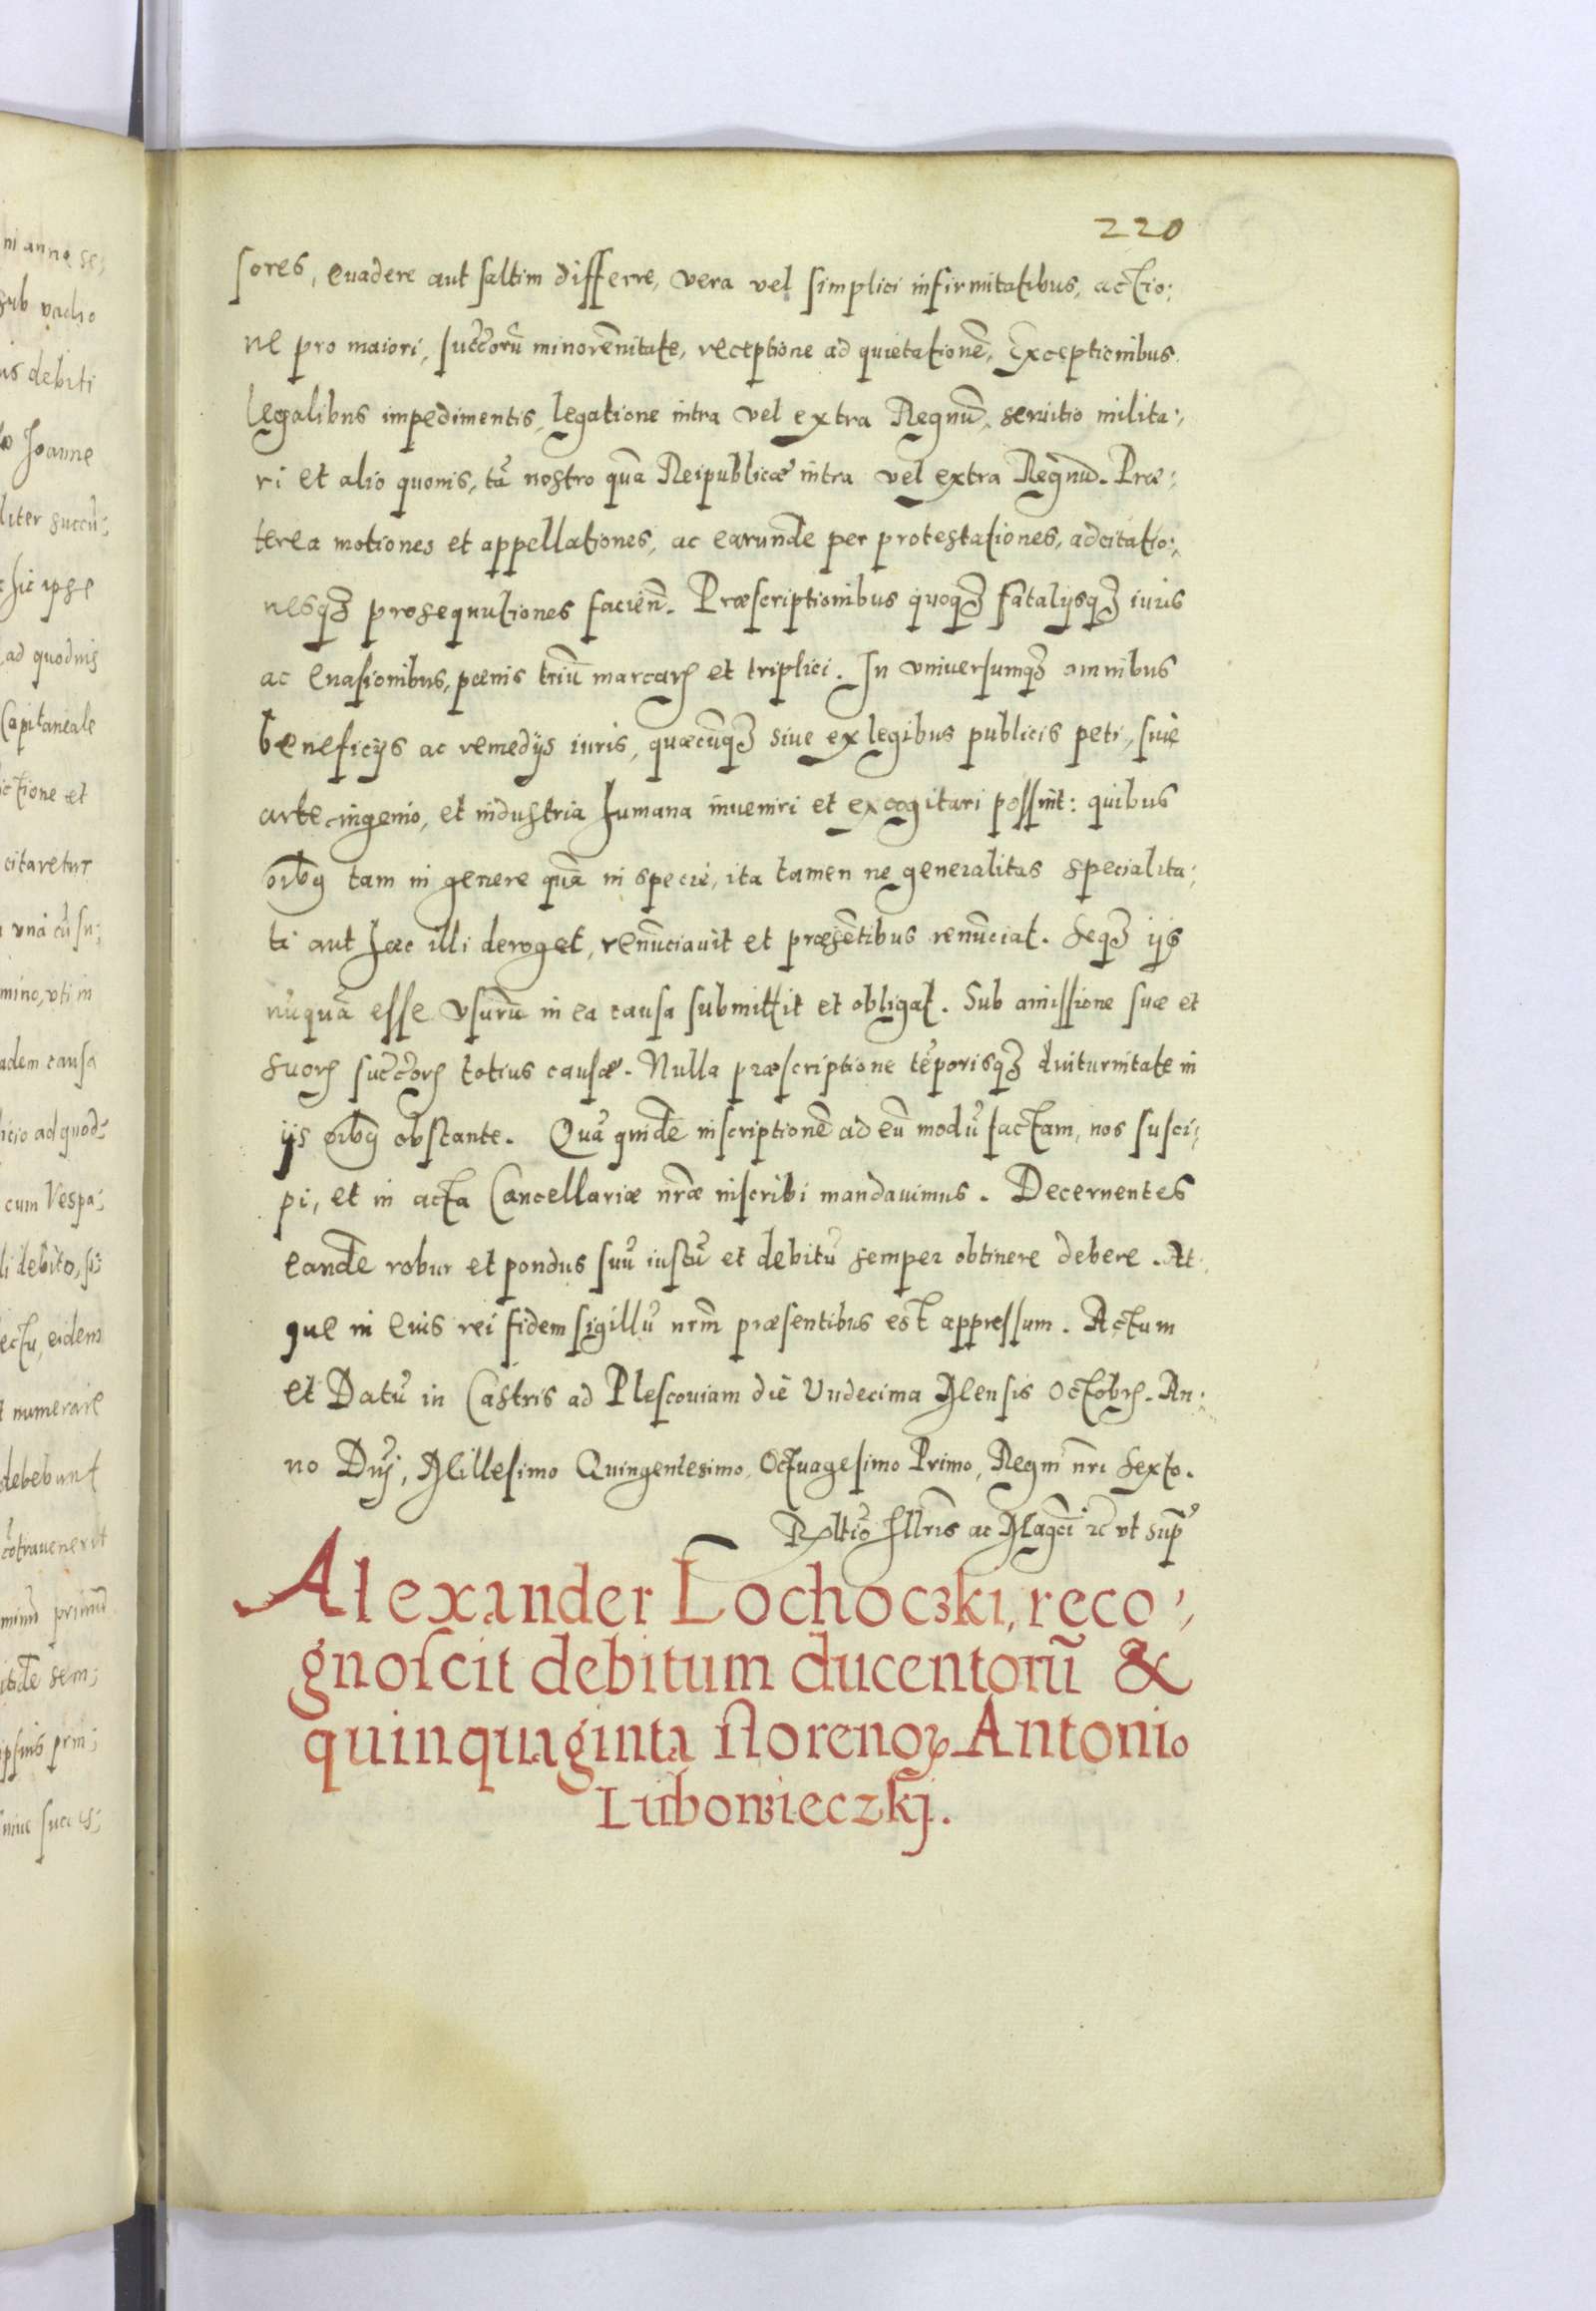 220
sores, euadere aut saltim differre, vera vel simplici infirmitatibus, actio:
ne pro maiori, succorũ minorẽnitate, receptione ad quietationẽ, Exceptionibus
legalibus impedimentis, legatione intra vel extra Regnũ, seruitio milita:
ri et alio quouis, tã nostro quã Reipublicæ intra vel extra Regnũ. Præ:
terea motiones et appellationes, ac earundẽ per protestationes, adcitatio:
nesqȝ prosequutiones facieñ. Præscriptionibus quoqȝ fatalijsqȝ iuris
ac euasionibus, pœnis triũ marcarꝝ et triplici. In vniuersumqȝ omnibus
beneficijs ac remedijs iuris, quæcũqȝ siue ex legibus publicis peti, siue
arte ingenio, et industria humana inueniri et excogitari possint: quibus
oĩbꝯ tam in genere quã in specie, ita tamen ne generalitas specialita:
ti aut hæc illi deroget, renũciauit et præsẽtibus renũciat. Seqȝ ijs
nũquã esse vsurũ in ea causa submittit et obligat. Sub amissione suæ et
suorꝝ succorꝝ totius causæ. Nulla præscriptione tẽporisqȝ diuturnitate in
ijs oĩbꝯ obstante. Quã quidẽ inscriptionẽ ad eũ modũ factam, nos susci:
pi, et in acta Cancellariæ nr̃æ inscribi mandauimus. Decernentes
eandẽ robur et pondus suũ iustũ et debitũ semper obtinere debere. At
que in eius rei fidem sigillũ nr̃m præsentibus est appressum. Actum
et Datũ in Castris ad Plescouiam die Vndecima Mensis Octobrꝭ. An:
no Dnĩ, Millesimo Quingentesimo, Octuagesimo Primo, Regni nr̃i Sexto.
Rltio Illris ac Magci ꝛc vt sup
Alexander Lochoczki, reco:
gnoscit debitum ducentorũ &
quinquaginta florenoꝝ Antonio
Lubowieczkj.